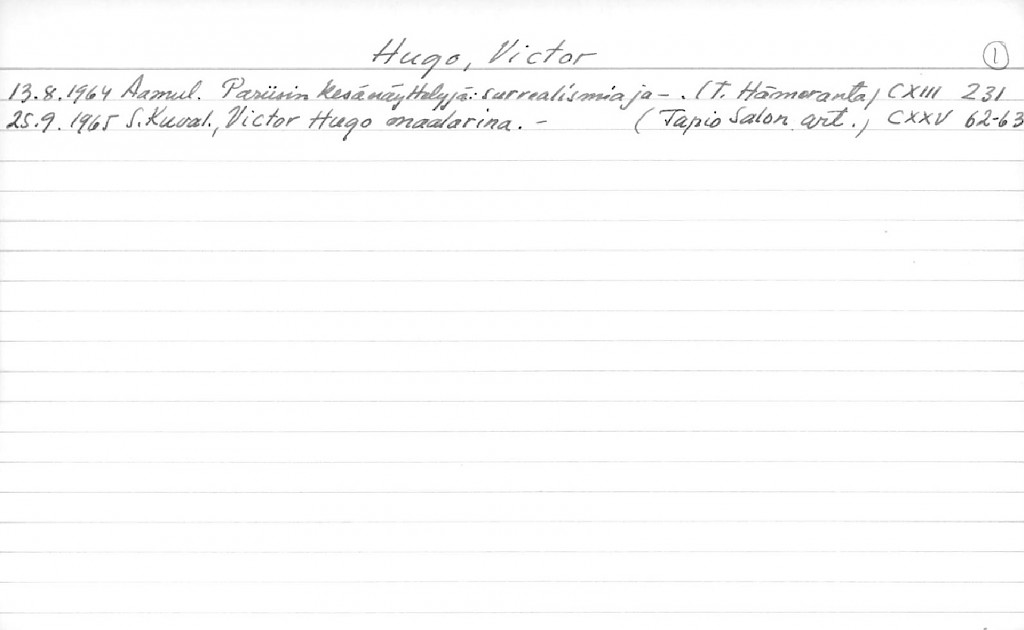 Hugo, Victor 1
13.8.1964 Aamul. Pariisin kesänäyttelyjä: surrealismia ja - . (T. Hämeranta) CXIII 231
25.9.1965 S.Kuval., Victor Hugo maalarina. - (Tapio Salon art.) CXXV 62-63